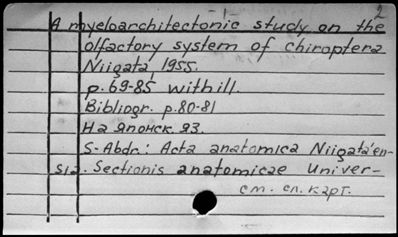 -1-
2
A myeloarchitectonic study on the
olfactory system of chiroptera
Niigata, 1955.
p. 69-85 with ill.
Bibliogr. p. 80-81
На японск. яз.
S-Abdr.: Acta anatomica Niigata'en-
sia. Sectionis anatomicae Univer-
см. сл. карт.